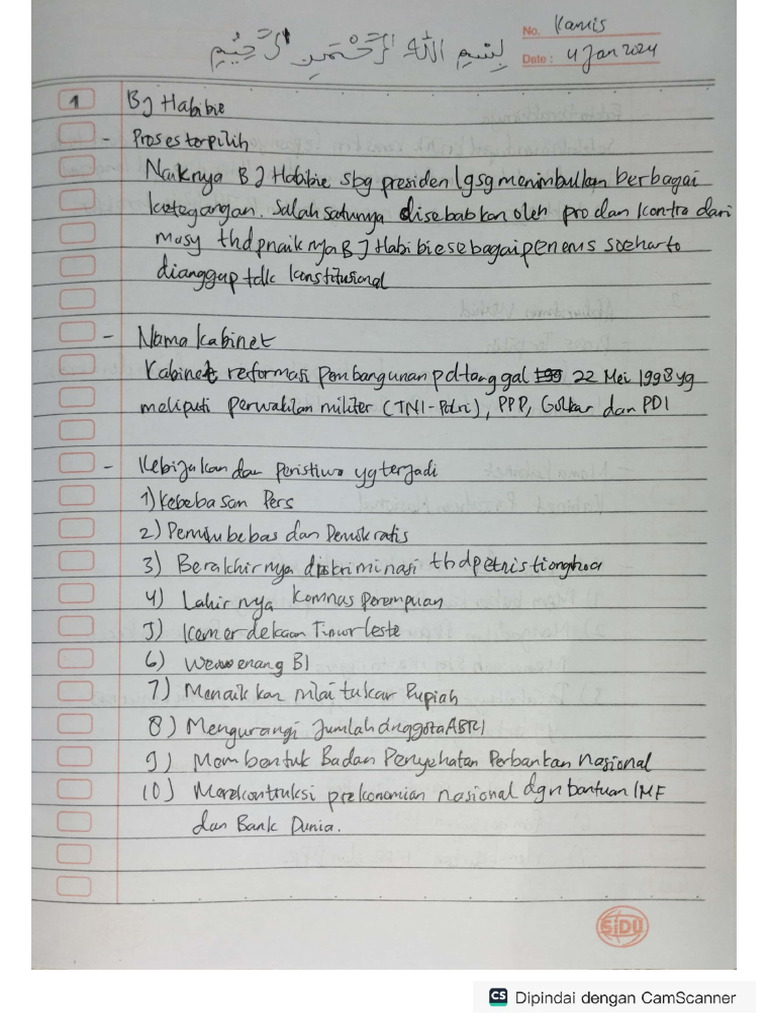 بِسْمِ اللهِ الرَّحْمٰنِ الرَّحِيْمِ
No. Kamis
Date: 4 Jan 2024
1 BJ Habibie
- Proses terpilih
Naiknya BJ Habibie sbg presiden lgsg menimbulkan berbagai
ketegangan. Salah satunya disebabkan oleh pro dan kontra dari
masy thdp naiknya BJ Habibie sebagai penerus Soeharto
dianggap tdk konstitusional
- Nama kabinet
Kabinet reformasi pembangunan pd tanggal 199 22 Mei 1998 yg
meliputi perwakilan militer (TNI-Polri), PPP, Golkar dan PDI
- Kebijakan dan peristiwa yg terjadi
1) Kebebasan Pers
2) Pemilu bebas dan Demokratis
3) Berakhirnya diskriminasi thdp etnis tionghoa
4) Lahirnya Komnas Perempuan
5) Kemerdekaan Timur Leste
6) Wewenang BI
7) Menaikkan nilai tukar Rupiah
8) Mengurangi Jumlah anggota ABRI
9) Membentuk Badan Penyehatan Perbankan Nasional
10) Merekontruksi prekonomian nasional dgn bantuan IMF
dan Bank Dunia.
SiDU
CS Dipindai dengan CamScanner